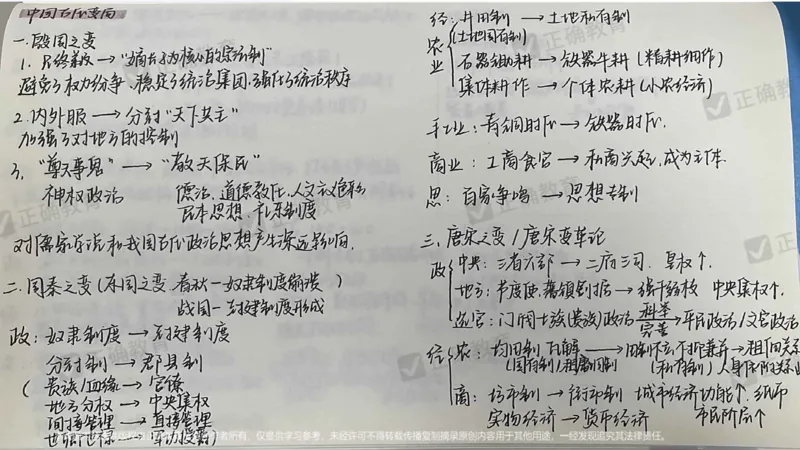 中国古代变局
一.殷周之变
1. 兄终弟及→"嫡长子为核心的宗法制"
避免了权力纷争,稳定了统治集团,强化了统治秩序
2.内外服→分封"天下共主"
加强了对地方的控制
3. "尊天事鬼"→"敬天保民"
神权政治 德治、道德教化、人文主义色彩
民本思想、礼乐制度
对儒家学说和我国古代政治思想产生深远影响.
二.周秦之变(
春秋—奴隶制度崩溃
战国—封建制度形成
政:奴隶制度→封建制度
分封制→郡县制
贵族/血缘→官僚
地方分权→中央集权
间接管理→直接管理
世卿世禄→军功授爵
经:井田制→土地私有制
(土地国有制)
农业
石器锄耕→铁器牛耕(精耕细作)
集体耕作→个体农耕(小农经济)
手工业:青铜时代→铁器时代.
商业:工商食官→私商兴起,成为主体.
思:百家争鸣→思想专制
三.唐宋之变/唐宋变革论
政
中央:三省六部→二府三司.皇权↑.
地方:节度使,藩镇割据→强干弱枝 中央集权↑.
选官:门阀士族(贵族)政治 科举完善→平民政治/文官政治
经
农:均田制瓦解→田制不立,不抑兼并→租佃关系
(国有制)租庸调制 (私有制)人身依附关系
商:坊市制→街市制 城市经济功能↑.纸币
实物经济→货币经济 市民阶层↑
正确教育
正确教育
正确教育
正确教育
正确教育
正确教育
仅供学习参考,未经许可不得转载传播复制摘录原创内容用于其他用途,一经发现追究其法律责任。